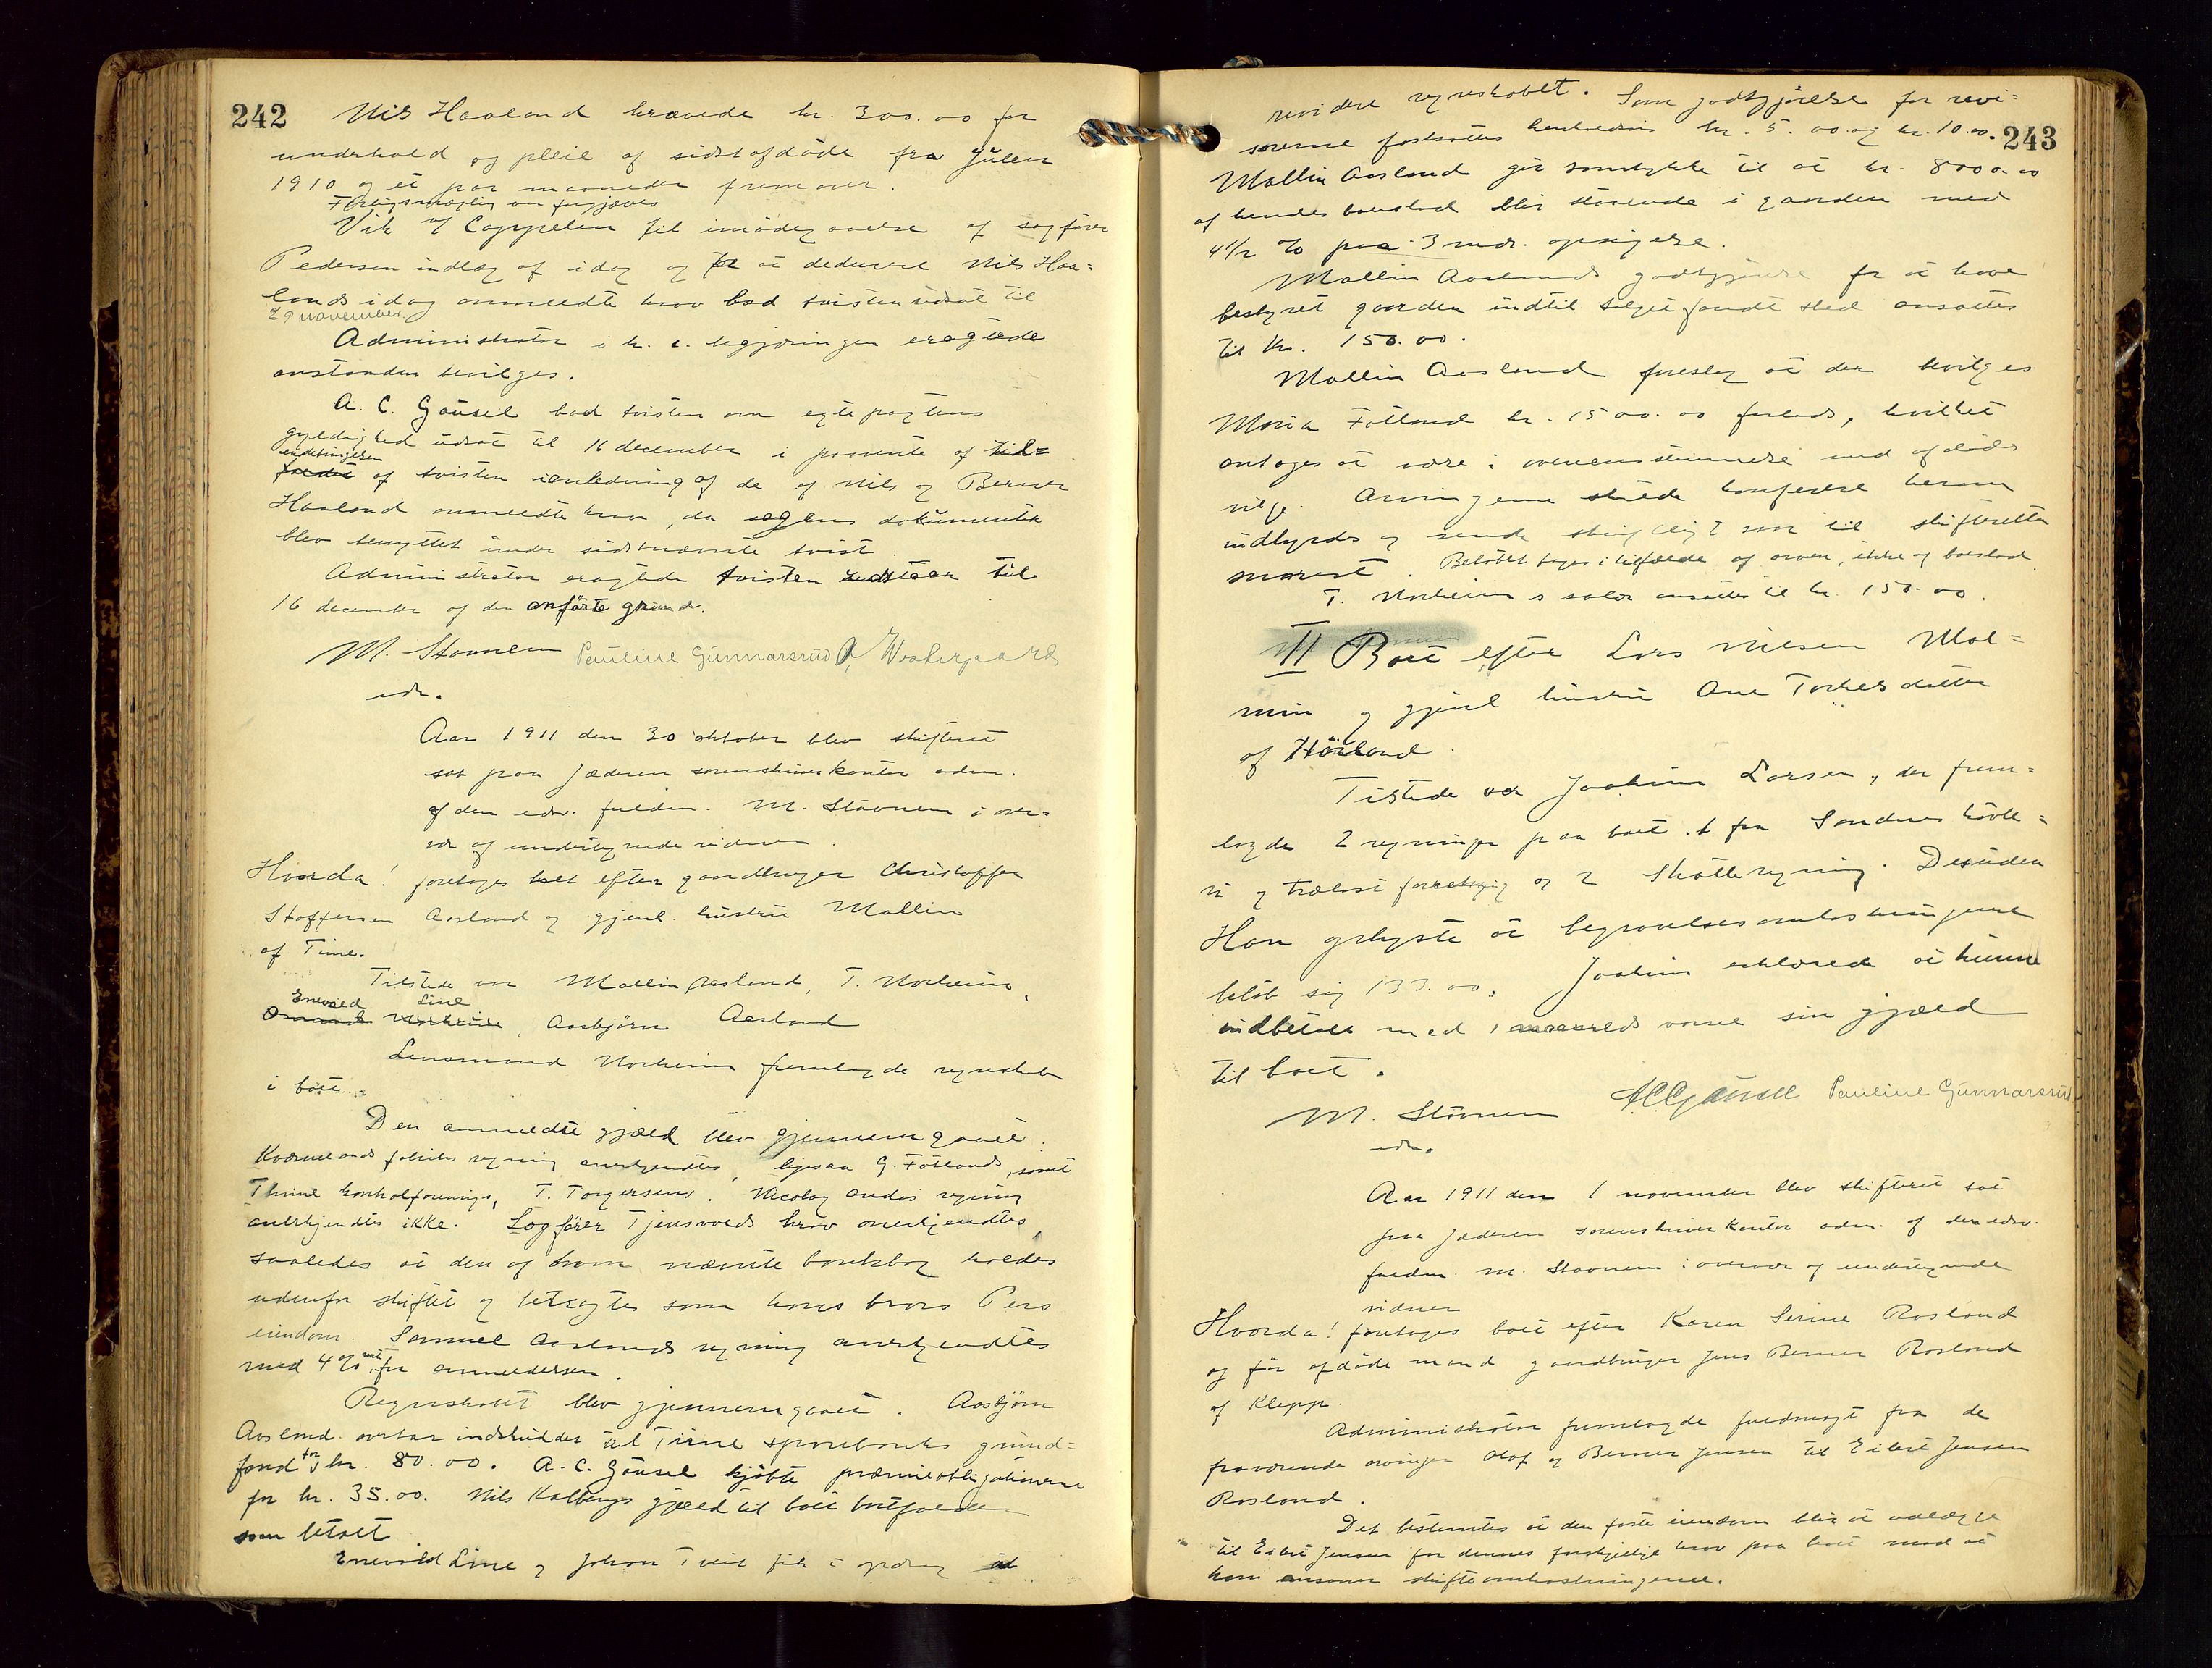 242
Nils Haaland krævede kr. 300.00 for
underhold og pleie af sidstafdøde fra julen
1910 og et par maaneder fremover.
Forligsmægling var forgjæves
Vik v/ Cappelen fik imødegaaelse af sagfører
Pedersen indlæg af idag og for at deducere Nils Haa=
lands idag anmeldte krav bad tvisten udsat til
29 november.
Administrator i h. t. begjæringen eragtede
anstanden bevilges.
A. C. Gausel bad tvisten om egtepagtens
gyldighed udsat til 16 december i paavente af tid=
endebringelsen
af tvisten i anledning af de af Nils og Berner
Haaland anmeldte krav, da sagens dokumenter
blev benyttet under sidstnævnte tvist.
Administrator eragtede tvisten udstaar til
16 december af den anførte grund.
M. Stavnem Pauline Gunnarsrud A. Westergaard
edv.
Aar 1911 den 30 oktober blev skifteret
sat paa Jæderen sorenskriverkontor adm.
af den edv. fuldm. M. Stavnem i over=
vær af undertegnede vidner.
Hvorda! foretoges boet efter gaardbruger Christoffer
Stoffersen Aasland og gjenl. hustru Mallin
af Time.
Tilstede var Mallin Aasland, T. Norheim,
Enevald Line
Asbjørn Aasland
Lensmand Norheim fremlagde regnskab
i boet.
Den anmeldte gjæld blev gjennemgaaet.
Kværnelands fabriks regning anerkjendtes, ligesaa G. Fotlands, samt
Thime kontrolforenings, T. Torgersens. Nicolay Andas regning
anerkjendtes ikke. Sagfører Tjensvolds krav anerkjendtes,
saaledes at den af ham nævnte bankbog holdes
udenfor skiftet og betragtes som hans brors Pers
eiendom. Samuel Aaslands regning anerkjendtes
med 4% rente fra anmeldelsen.
Regnskabet blev gjennemgaaet. Aasbjørn
Aasland overtar indskuddet til Time sparebanks grund=
fond for kr. 80.00. A. C. Gausel kjøbte præmieobligationerne
for kr. 35.00. Nils Kalbergs gjæld til boet bortfalder
som betalt
Enevald Line og Johan Tveit fik i opdrag at
243
revidere regnskabet. Som godtgjørelse for revi=
sorerne fastsattes henholdsvis kr. 5.00 og kr. 10.00.
Mallin Aasland gir samtykke til at kr. 8000.00
af hendes boeslod blir staaende i gaarden med
4 1/2 % paa 3 mdr. opsigelse.
Mallin Aaslands godtgjørelse for at have
bestyret gaarden indtil salget fandt sted ansattes
til kr. 150.00.
Mallin Aasland foreslog at der bevilges
Maria Fotland kr. 1500.00 forlods, hvilket
antoges at være i overensstemmelse med afdødes
vilje. Arvingerne skulde konferere herom
indbyrdes og sende skriftlig svar til skifteretten
snarest. Beløbet tages i tilfælde af arven, ikke af boeslod.
T. Norheims salær ansattes til kr. 150.00.
II Boet efter Lars Nilsen Mal=
min og gjenl hustru Ane Torkelsdatter
af Høiland.
Tilstede var Joakim Larsen, der frem=
lagde 2 regninger paa boet. 1 fra Sandnes høvle=
ri og trælast og 2 Skatteregning. Desuden
Han oplyste at begravelsesomkostningerne
beløb sig 133.00. Joakim erklærede at kunne
indbetale med 1 maaneds varsel sin gjæld
til boet.
M. Stavnem ACGausel Pauline Gunnarsrud
edv.
Aar 1911 den 1 november blev skifteret sat
paa Jæderen sorenskriverkontor adm. af den edsv.
fuldm. M. Stavnem i overvær af undertegnede
vidner
Hvorda! foretoges boet efter Karen Serine Rosland
og før afdøde mand gaardbruger Jens Berner Rosland
af Klepp.
Administrator fremlagde fuldmagt fra de
fraværende arvinger Olaf og Berner Jensen til Eilert Jensen
Rosland.
Det bestemtes at den faste eiendom blir at udlægge
til Eilert Jensen for dennes forskjellige krav paa boet mod at
han ansvarer skifteomkostningerne.